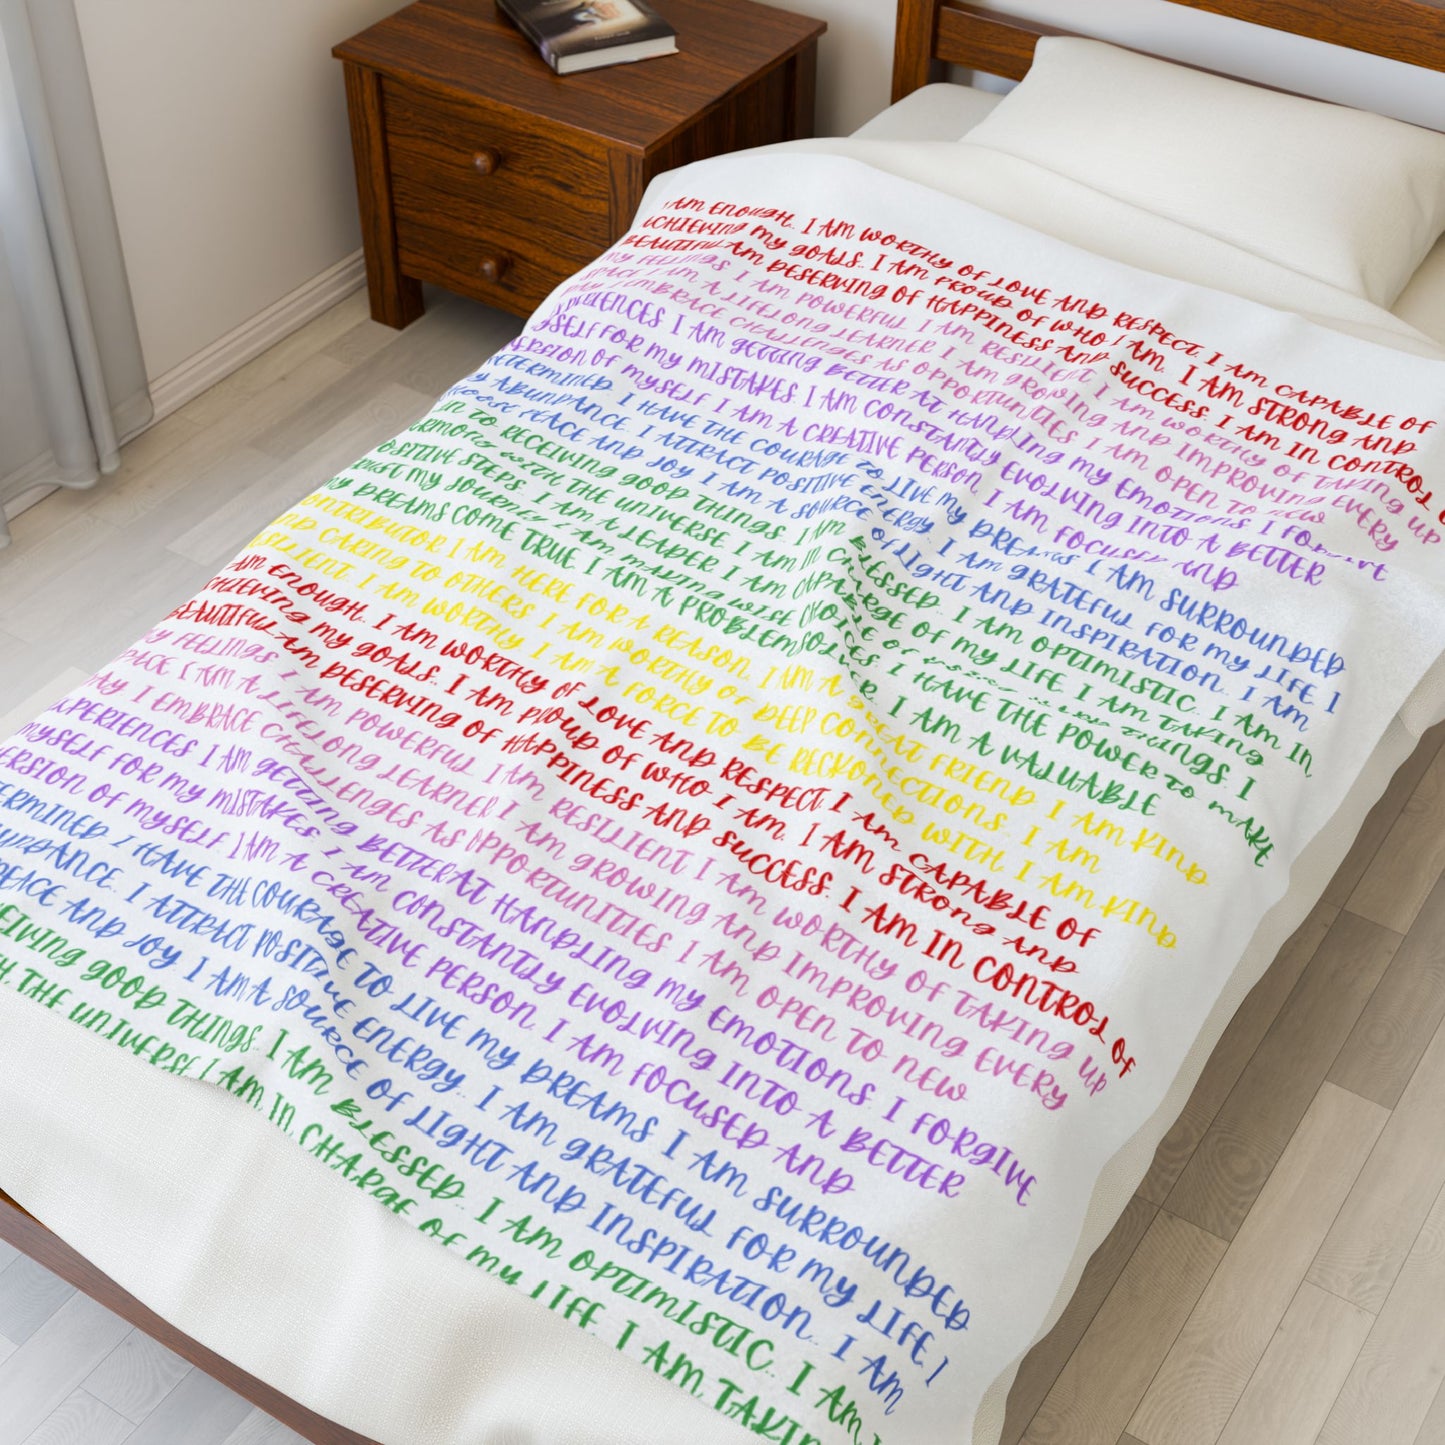 I AM ENOUGH. I AM WORTHY OF LOVE AND RESPECT. I AM CAPABLE OF
ACHIEVING MY GOALS. I AM PROUD OF WHO I AM. I AM STRONG AND
BEAUTIFUL AM DESERVING OF HAPPINESS AND SUCCESS. I AM IN CONTROL OF
MY FEELINGS. I AM POWERFUL I AM RESILIENT I AM WORTHY OF TAKING UP
SPACE I AM A LIFELONG LEARNER I AM GROWING AND IMPROVING EVERY
DAY I EMBRACE CHALLENGES AS OPPORTUNITIES I AM OPEN TO NEW
I AM GETTING BETTER AT HANDLING MY EMOTIONS. I FORGIVE
MYSELF FOR MY MISTAKES. I AM CONSTANTLY EVOLVING INTO A BETTER
VERSION OF MYSELF I AM A CREATIVE PERSON. I AM FOCUSED AND
DETERMINED. I HAVE THE COURAGE TO LIVE MY DREAMS I AM SURROUNDED
BY ABUNDANCE. I ATTRACT POSITIVE ENERGY. I AM GRATEFUL FOR MY LIFE. I
CHOOSE PEACE AND JOY. I AM A SOURCE OF LIGHT AND INSPIRATION. I AM
TO RECEIVING GOOD THINGS. I AM BLESSED. I AM OPTIMISTIC. I AM IN
HARMONY WITH THE UNIVERSE I AM IN CHARGE OF MY LIFE. I AM TAKING
POSITIVE STEPS. I AM A LEADER I AM CAPABLE OF THINGS. I
TRUST MY JOURNEY I AM MAKING WISE CHOICES. I HAVE THE POWER TO MAKE
MY DREAMS COME TRUE. I AM A PROBLEM SOLVER. I AM A VALUABLE
CONTRIBUTOR I AM HERE FOR A REASON. I AM A GREAT FRIEND. I AM KIND
AND CARING TO OTHERS. I AM WORTHY OF DEEP CONNECTIONS. I AM
RESILIENT. I AM WORTHY. I AM A FORCE TO BE RECKONED WITH. I AM KIND
I AM ENOUGH. I AM WORTHY OF LOVE AND RESPECT. I AM CAPABLE OF
ACHIEVING MY GOALS. I AM PROUD OF WHO I AM. I AM STRONG AND
BEAUTIFUL AM DESERVING OF HAPPINESS AND SUCCESS. I AM IN CONTROL OF
MY FEELINGS. I AM POWERFUL I AM RESILIENT I AM WORTHY OF TAKING UP
SPACE I AM A LIFELONG LEARNER I AM GROWING AND IMPROVING EVERY
DAY I EMBRACE CHALLENGES AS OPPORTUNITIES I AM OPEN TO NEW
EXPERIENCES I AM GETTING BETTER AT HANDLING MY EMOTIONS. I FORGIVE
MYSELF FOR MY MISTAKES. I AM CONSTANTLY EVOLVING INTO A BETTER
VERSION OF MYSELF I AM A CREATIVE PERSON. I AM FOCUSED AND
DETERMINED. I HAVE THE COURAGE TO LIVE MY DREAMS I AM SURROUNDED
ABUNDANCE. I ATTRACT POSITIVE ENERGY. I AM GRATEFUL FOR MY LIFE. I
PEACE AND JOY. I AM A SOURCE OF LIGHT AND INSPIRATION. I AM
RECEIVING GOOD THINGS. I AM BLESSED. I AM OPTIMISTIC. I AM
THE UNIVERSE I AM IN CHARGE OF MY LIFE. I AM TAKING